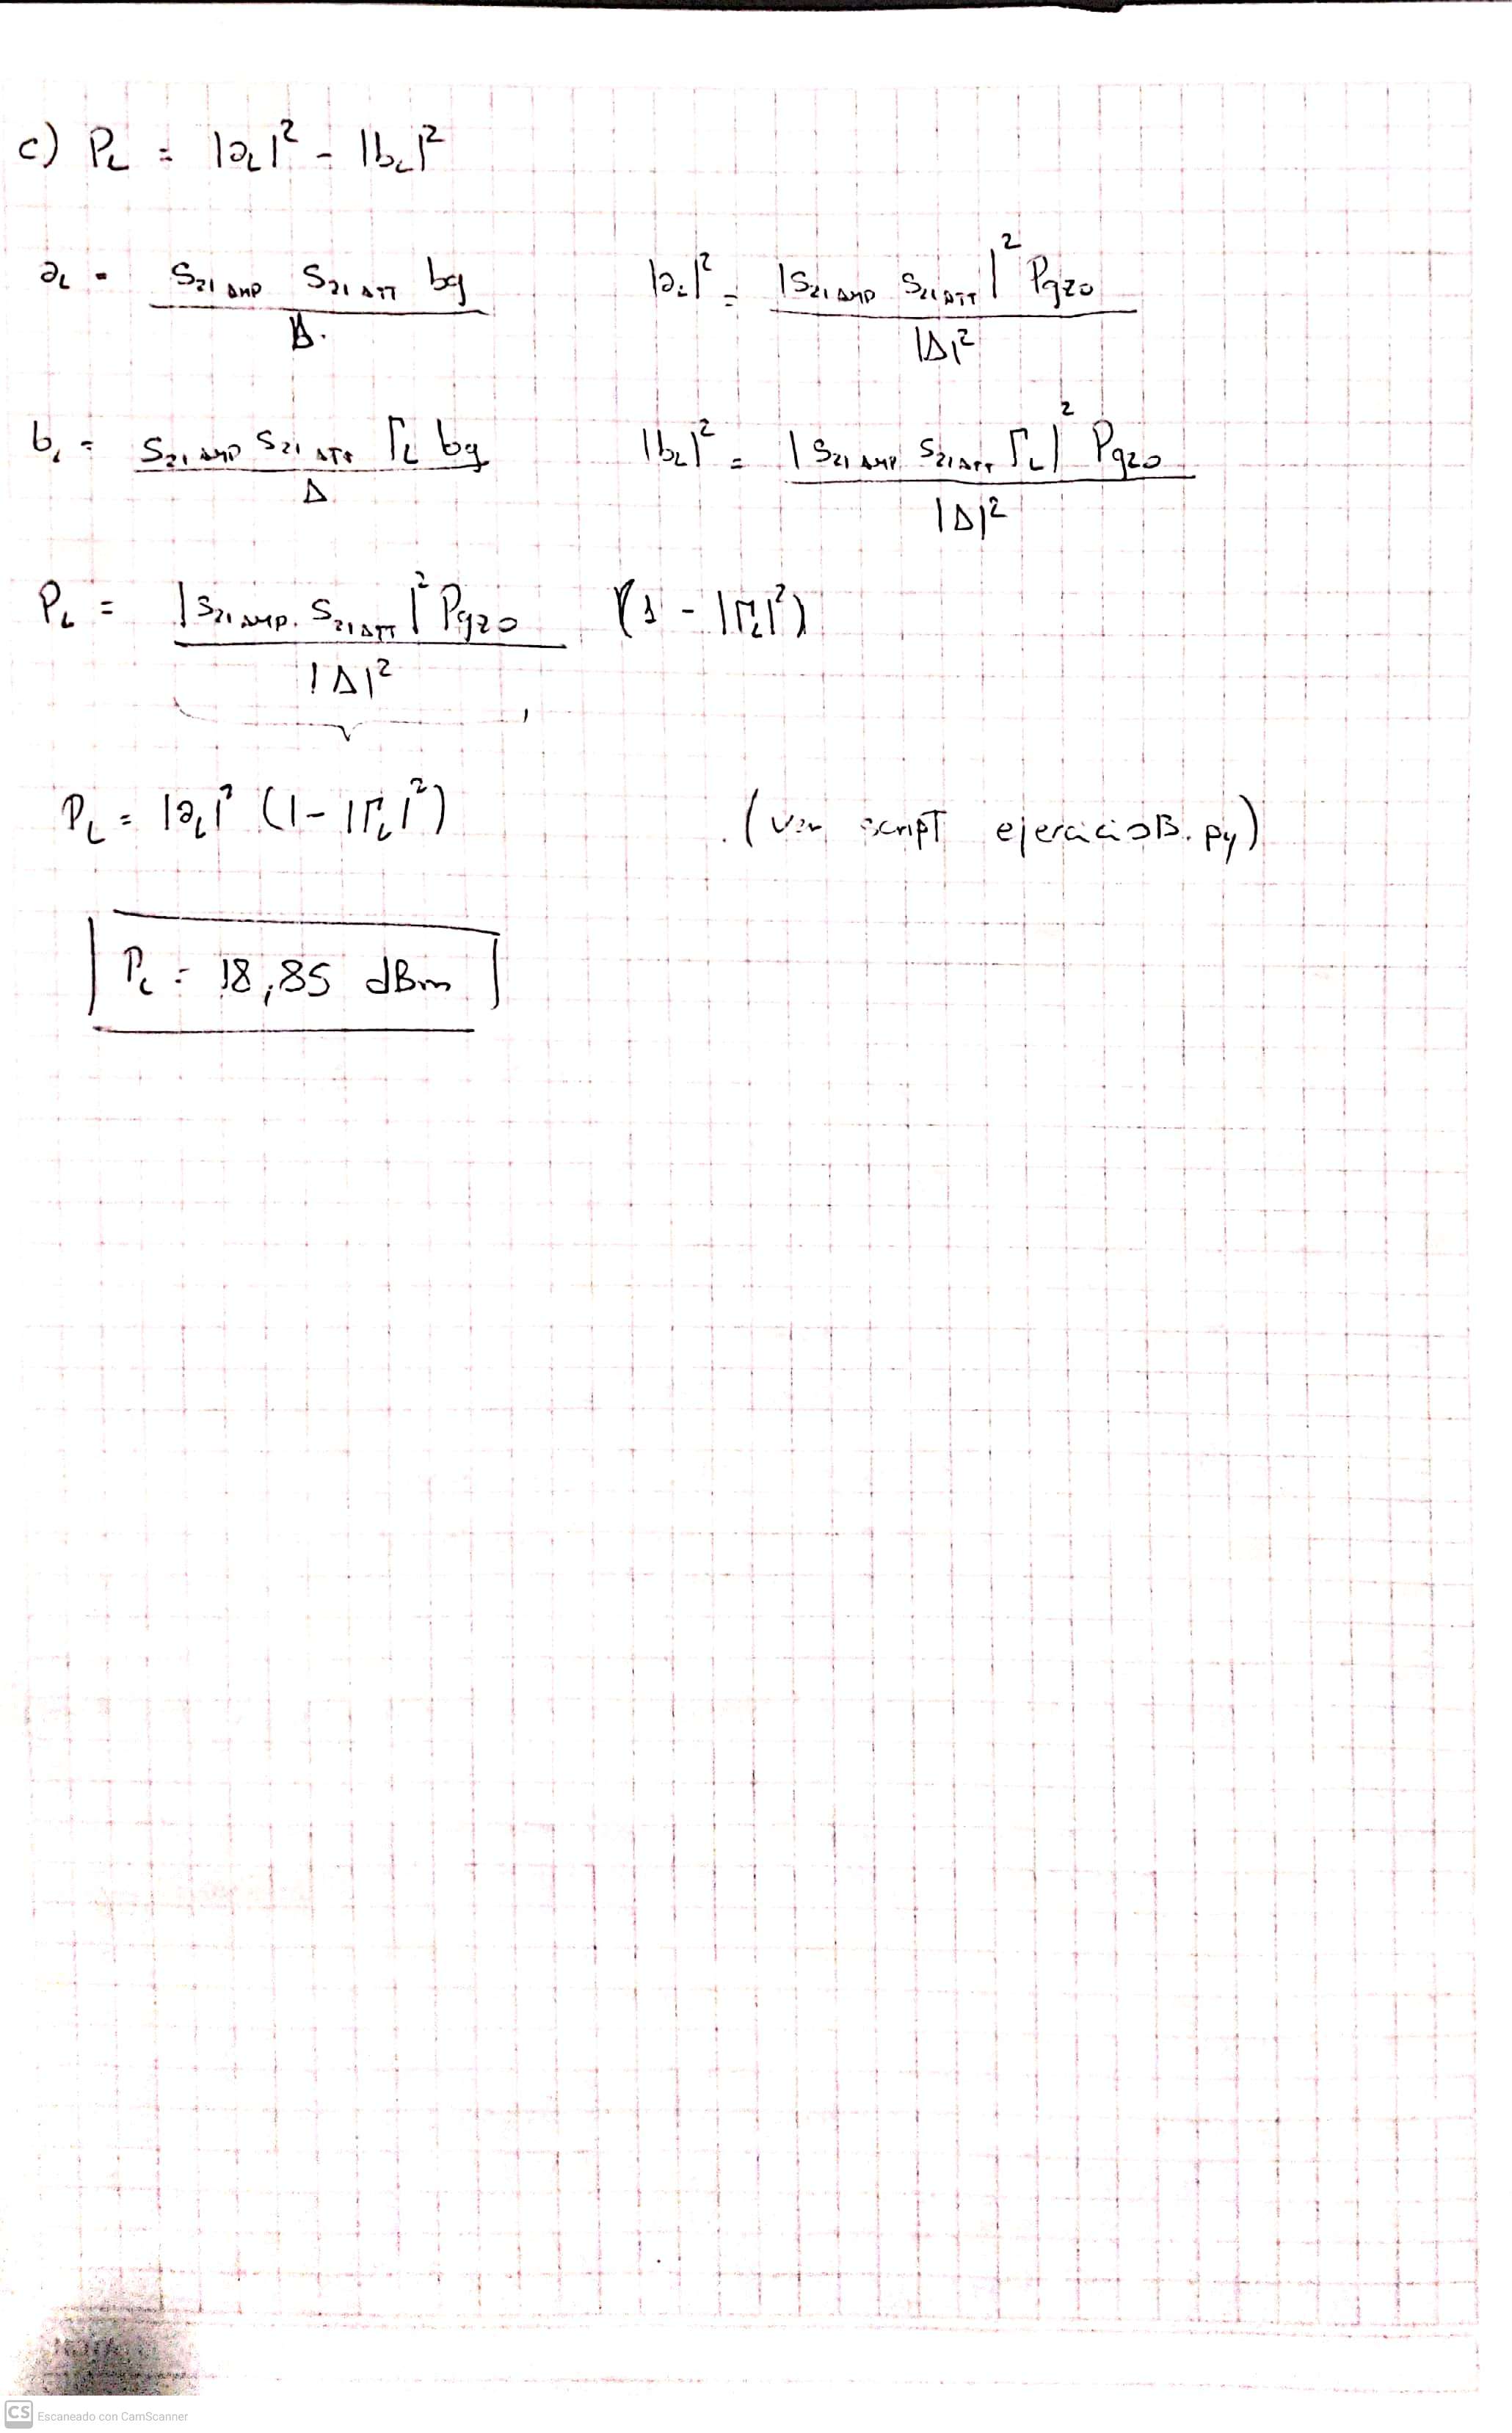 c) P_L = |a_L|² - |b_L|²
a_L = S_21 AMP S_21 ATT bg / Δ    |a_L|² = |S_21 AMP S_21 ATT|² Pgzo / |Δ|²
b_L = S_21 AMP S_21 ATT Γ_L bg / Δ    |b_L|² = |S_21 AMP S_21 ATT Γ_L|² Pgzo / |Δ|²
P_L = |S_21 AMP. S_21 ATT|² Pgzo / |Δ|² (1 - |Γ_L|²)
P_L = |a_L|² (1 - |Γ_L|²)    (ver script ejercicioB.py)
P_L = 18,85 dBm
CS Escaneado con CamScanner